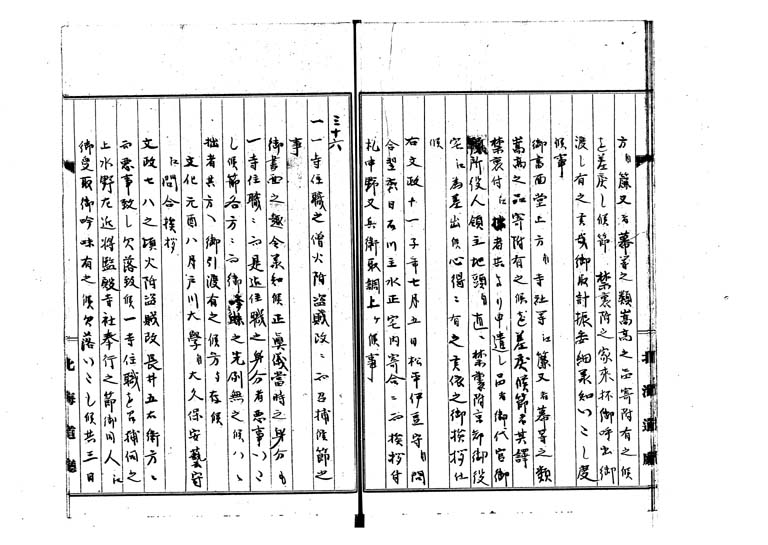 方ゟ簾又者幕等之類嵩高之品寄附有之候
を差戻し候節禁裏附之家来杯御呼出御
渡し有之候哉御取計振委細承知いたし度
候事
御書面堂上方ゟ寺社等江簾又者幕等之類
嵩高之品寄附有之候を差戻候節者其譯
禁裏付江拙者共より申遣し品者御代官御
役所役人領主地頭ゟ直ニ禁裏附京都御役
宅江為差出候心得ニ有之候依之御挨拶仕
候
右文政十一子年七月五日松平伊豆守ゟ問
合翌
日石川主水正宅内寄合ニ而挨拶付
札中野又兵衛取調上ヶ候事
三十六
一一寺住職之僧火附盗賊改ニ而召捕候節之
事
御書面之趣令承知候正真儀當時之身分ハ
一寺住職ニ而是迄住職之身分有悪事いたし
候節各方ニ而御
之先例無之候ハヽ
拙者共方へ御引渡有之候方与存候
文化元酉八月戸川大学ゟ大久保安藝守
江問合挨拶
文政七八之頃火附盗賊改長井五右衛門方ニ
而悪事致し欠落致候一寺住職を召捕伺之
上水野左近将監殿寺社奉行之節御同人江
御受取御吟味有之候欠落いたし候共三日
北海道廳
北海道廳